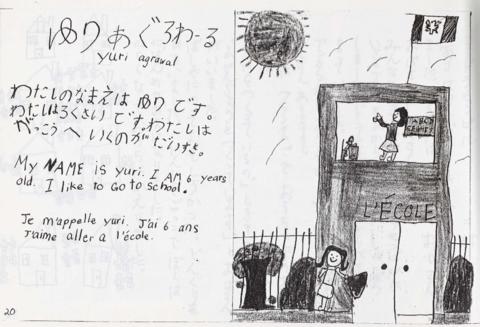 ゆり あぐろわーる
yuri agrawal
わたしのなまえは ゆり です。
わたしはろくさい です。わたしは
がっこう へ いくのが だいすき。
My NAME is yuri. I AM 6 years
old. I like to Go to school.
Je m'appelle yuri. J'ai 6 ans
J'aime aller a l'école.
20
L'ÉCOLE